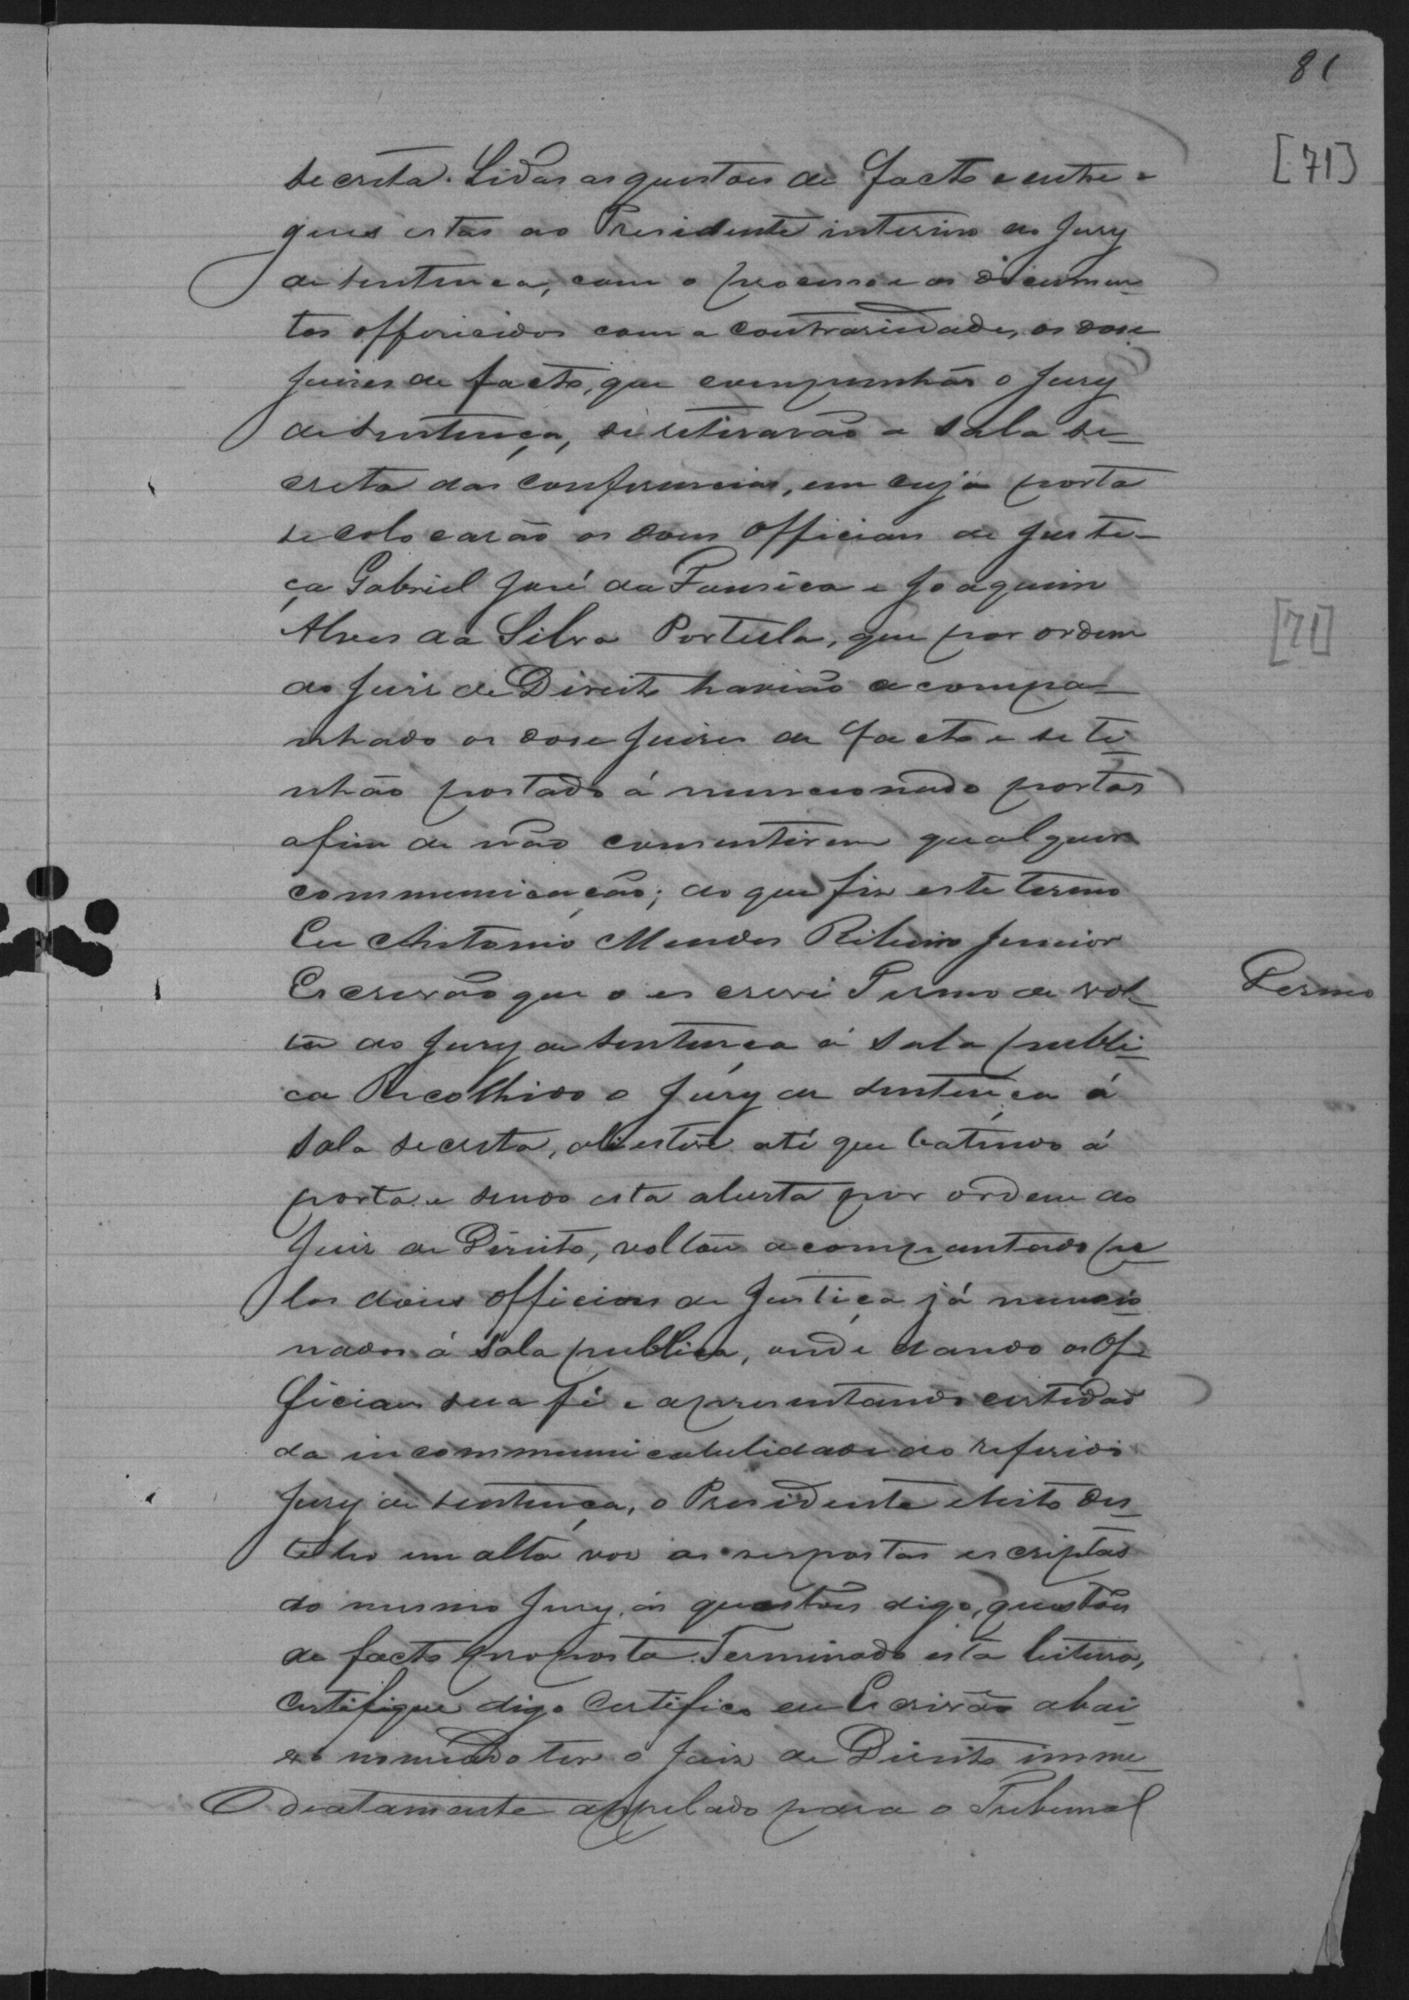 81
[71]
secreta. Lidas as questões de facto e entre-
gues estas ao Presidente interino do Jury
de sentença, com o processo e os documen-
tos offericidos com a contrariedade, os dose
Juises de facto, que compunhão o Jury
de sentença, se retirarão a sala se-
creta das conferencias, em cuja porta
se colocarão os dous officiaes de Justi-
ça Gabriel José da Fonseca e Joaquim
Alves da Silva Portella, que por ordem
do Juis de Direito havião acompa-
nhado os dose Juises de facto e se ti-
nhão postado á mencionado portas
afim de não consentirem qualquer
communicação; do que fis este termo
Eu Antonio Mendes Ribeiro Junior
Escrivão que o escrevi Termo de vol-
ta do Jury de sentença á sala publi-
ca Recolhido o Jury de sentença á
sala secreta, ali esteve até que batendo á
porta e sendo esta aberta por ordem do
Juis de Direito, voltou acompanhado pe-
los dous officiaes de Justiça já mencio-
nados á sala publica, onde dando os Of-
ficiaes sua fé e apresentando certidão
da incommunicabilidade do referido
Jury de sentença, o Presidente eleito des-
te leo em alta voz as respostas escriptas
do mesmo Jury, ás questões digo, questões
de facto proposta. Terminado esta leitura,
Certifique digo Certifico eu Escrivão abai-
xo nomeado ter o Juis de Direito imme-
diatamente appelado para o Tribunal
Termo
[71]